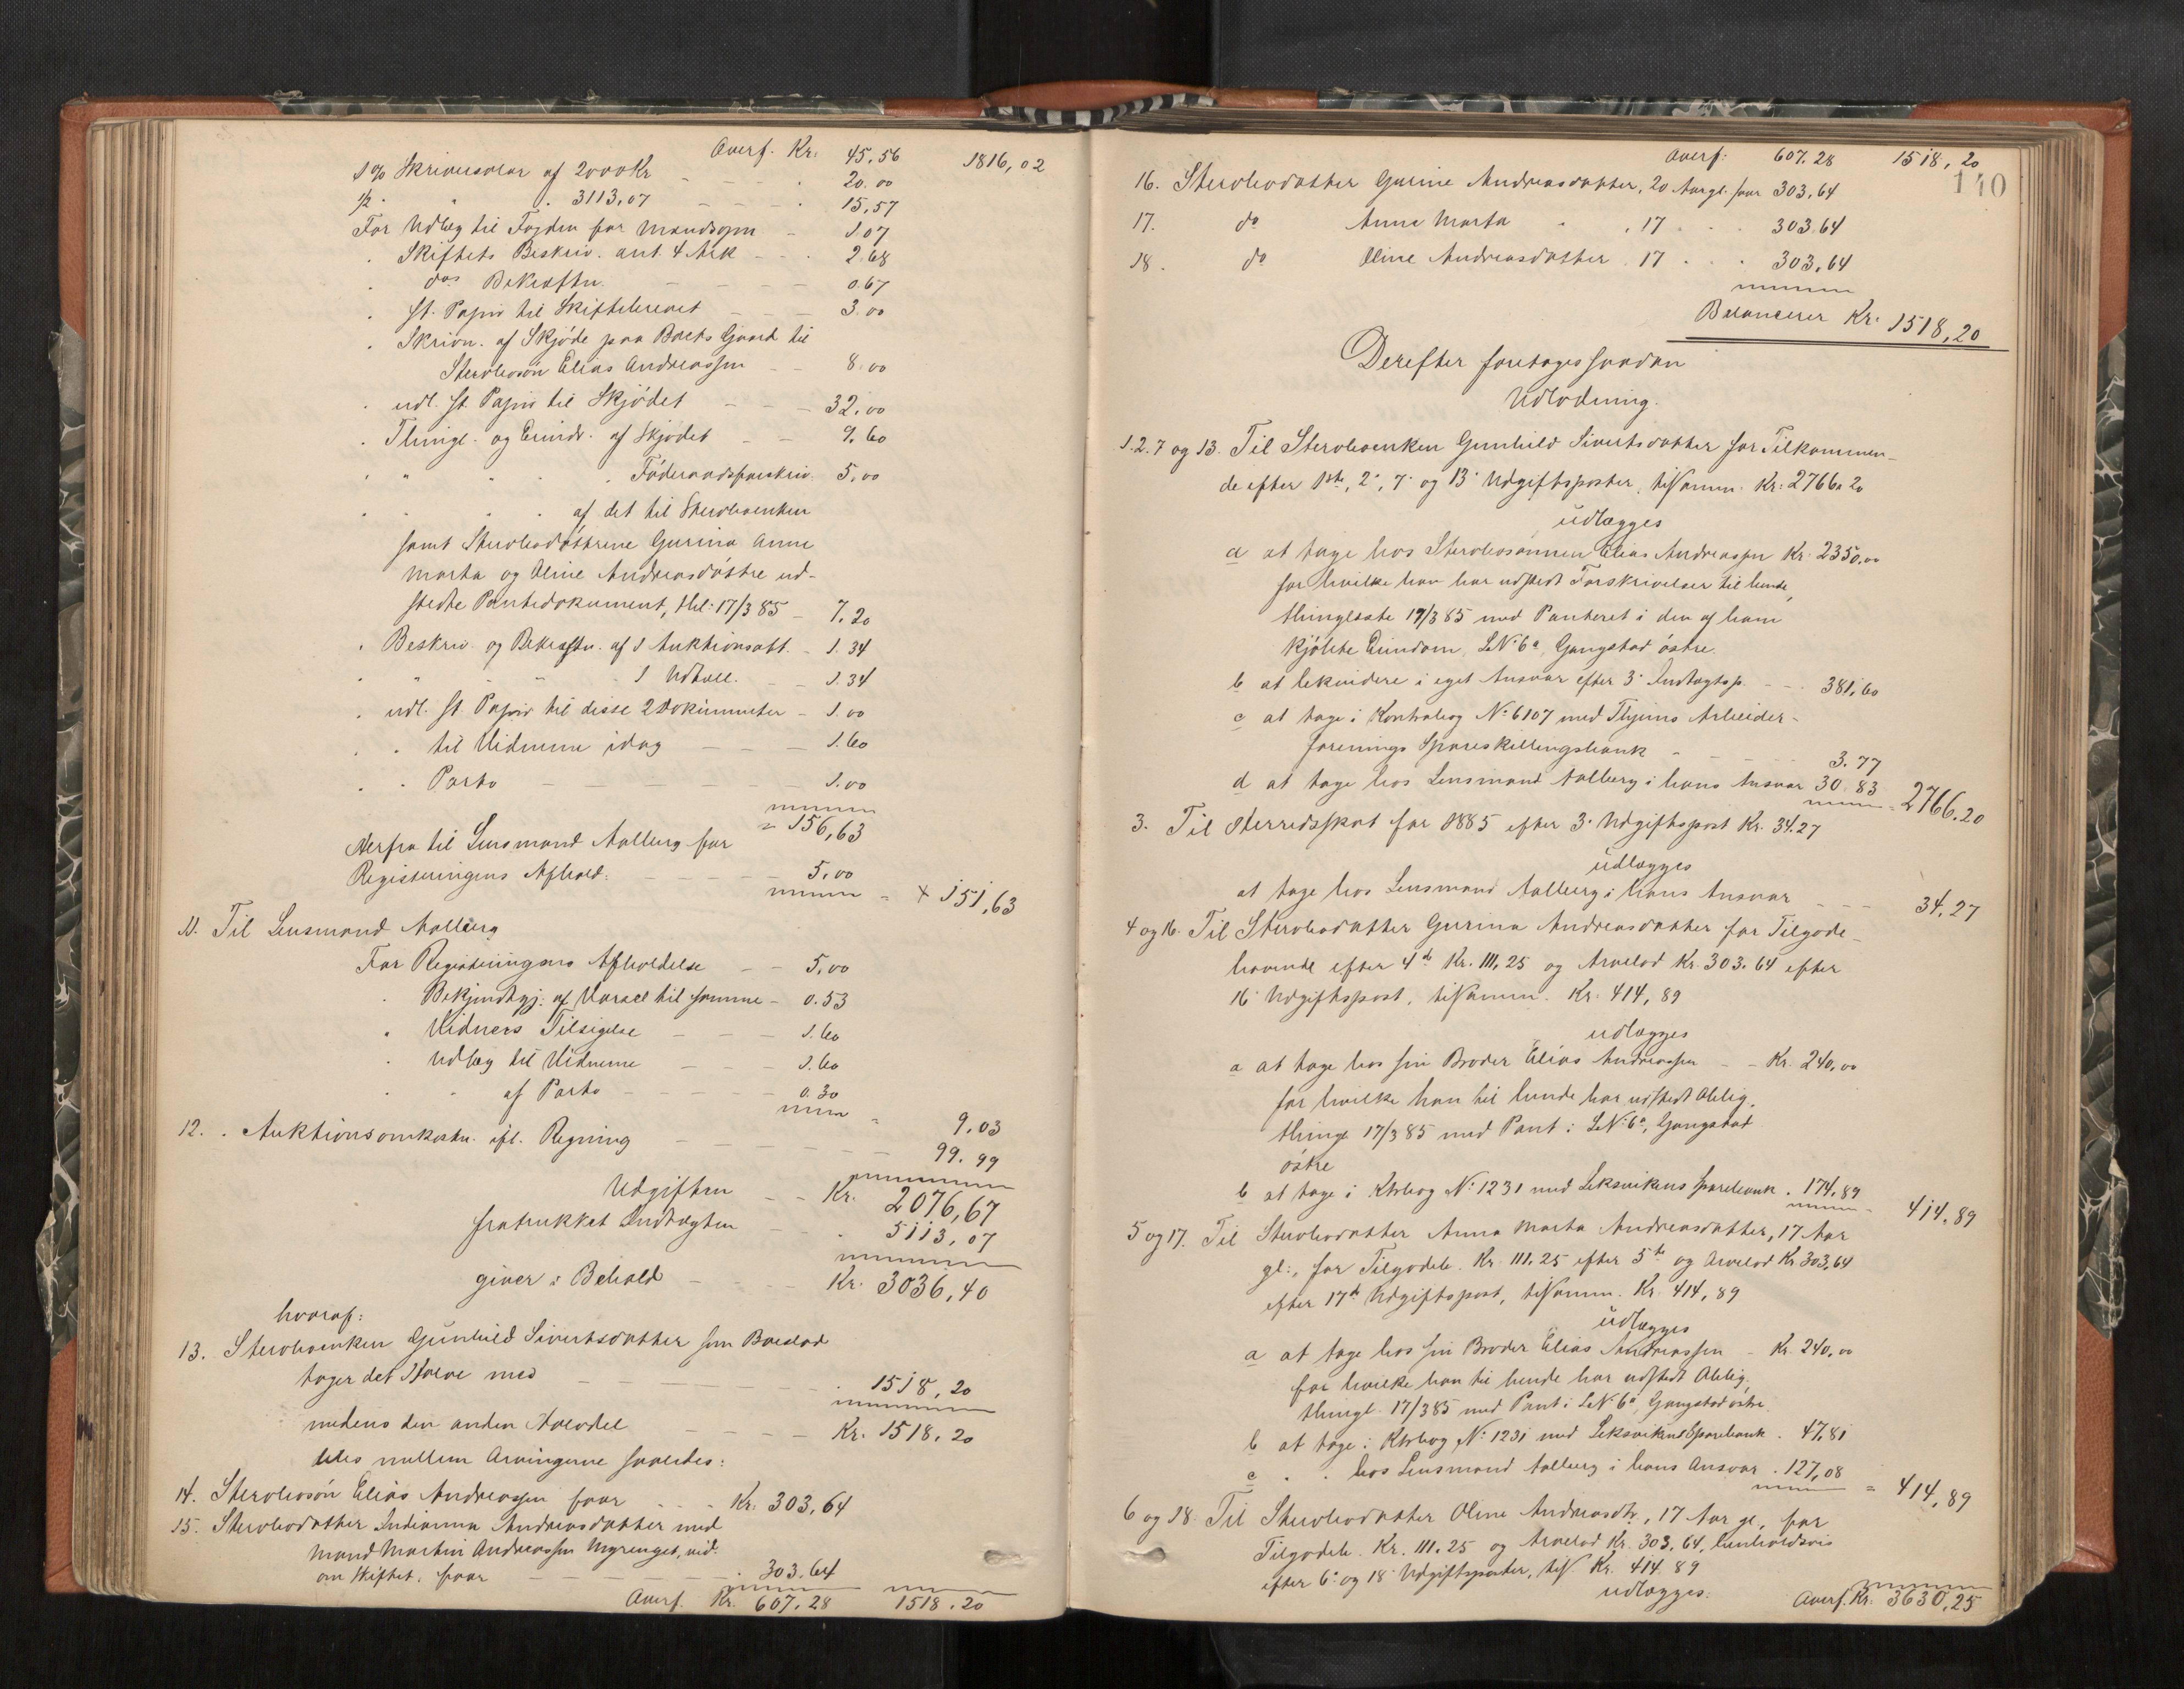 Overf. Kr: 45,56 1816,02
1 % Skriversalar af 2000 Kr - - - 20.00
1/2 " " " 3113,07 - - - 15,57
For Udlæg til Fogden for Mandsopn - 1.07
" Skiftets Beskriv. ant. 4 Ark - - 2.68
" dos Bekræftn. - - - - 0.67
" st. Papir til Skiftebrevet - - - 3.00
" Skrivn. af Skjøde paa Boets Gaard til
Sterbosøn Elias Andreassen - - 8.00
" udl. st. Papir til Skjødet - - - 32.00
" Thingl. og Erindr. af Skjødet - - 9.60
" " " " Føderaadsforskriv. 5,00
" " " " af det til Sterboenken
samt Sterbodøttrene Gurina Anne
Marta og Oline Andreasdøttre ud-
stedte Pantedokument, thl: 17/3 85 - 7.20
" Beskriv. og Bekræftn. af 1 Auktionsatt. - 1.34
" " " 1 Udtall. - - 1.34
" udl. st. Papir til disse 2 Dokumenter - 1.00
" " til Vidnerne idag - - - 1.60
" " Porto - - - - - - 1.00
= 156,63
Herfra til Lensmand Aalberg for
Registreringens Afhold: - - - - - 5,00
= + 151,63
11. Til Lensmand Aalberg
For Registreringens Afholdelse - - 5,00
" Bekjendtgj: af Varsel til samme - 0.53
" Vidners Tilsigelse - - - 1.60
" Udlæg til Vidnerne - - - 1.60
" " af Porto - - - - - 0.30
= 9,03
12. " Auktionsomkostn. efl. Regning - - - - - 99.99
Udgiften - - Kr. 2076,67
fratrukket Indtægten - - 5113,07
giver i Behold - - - Kr. 3036,40
hvoraf:
13. Sterboenken Gunhild Sivertsdatter som Boeslod
tager det Halve med - - - - - - 1518,20
medens den anden Halvdel - - - - Kr. 1518.20
deles mellem Arvingerne saaledes:
14. Sterbosøn Elias Andreassen faar - - - Kr: 303,64
15. Sterbodatter Indianna Andreasdatter med
Mand Martin Andreassen Myrenget, vid.
om Skiftet, faar - - - - - 303.64
Overf. Kr. 607.28 1518.20
140
Overf: 607.28 1518,20
16. Sterbodatter Gurine Andreasdatter, 20 Aargl. faar 303,64
17. do Anne Marta " , 17 " " 303.64
18. do Oline Andreasdatter . 17 " " 303,64
Balancerer Kr. 1518,20
Derefter foretoges saadan
Udlodning.
1. 2. 7 og 13. Til Sterboenken Gunhild Sivertsdatter for Tilkommen-
de efter 1ste, 2', 7' og 13' Udgiftsposter, tilsamm. Kr: 2766.20
udlægges
a at tage hos Sterbosønnen Elias Andreassen Kr. 2350,00
for hvilke han har udstedt Forskrivelser til hende,
thinglæste 17/3 85 med Panteret i den af ham
kjøbte Eiendom, LN: 6a, Gangstad østre.
b at lekvidere i eget Ansvar efter 3' Indtægtsp. - - 381,60
c at tage i Kontrabog No 6107 med Thjems Arbeider-
forenings Spareskillingsbank - - - - 3.77
d at tage hos Lensmand Aalberg i hans Ansvar 30.83 = 2766.20
3. Til Herredsskat for 1885 efter 3' Udgiftspost Kr. 34.27
udlægges
at tage hos Lensmand Aalberg i hans Ansvar - - - 34.27
4 og 16. Til Sterbodatter Gurina Andreasdatter for Tilgode-
havende efter 4de Kr. 111,25 og Arvelod Kr. 303.64 efter
16' Udgiftspost, tilsamm. Kr. 414,89
udlægges
a at tage hos sin Broder Elias Andreassen - - Kr. 240,00
for hvilke han til hende har udstedt Oblig.
thingl 17/3 85 med Pant i LN: 6a, Gangstad
østre
b at tage i Ktrbog No 1231 med Leksvikens Sparebank . 174.89
414.89
5 og 17. Til Sterbodatter Anna Marta Andreasdatter, 17 Aar
gl:, for Tilgodeh. Kr. 111.25 efter 5te og Arvelod Kr 303,64
efter 17de Udgiftspost, tilsamm. Kr. 414,89
udlægges
a at tage hos sin Broder Elias Andreassen - Kr. 240,00
for hvilke han til hende har udstedt Oblig,
thingl. 17/3 85 med Pant i LN 6a, Gangstad østre.
b at tage i Ktrbog No 1231 med Leksvikens Sparebank . 47,81
c " " hos Lensmand Aalberg i hans Ansvar . 127,08
= 414,89
6 og 18. Til Sterbodatter Oline Andreasdtr, 17 Aar gl, for
Tilgodeh. Kr. 111.25 og Arvelod Kr. 303,64, henholdsvis
efter 6' og 18' Udgiftsposter, tils. Kr. 414.89
udlægges:
Overf. Kr. 3630,25